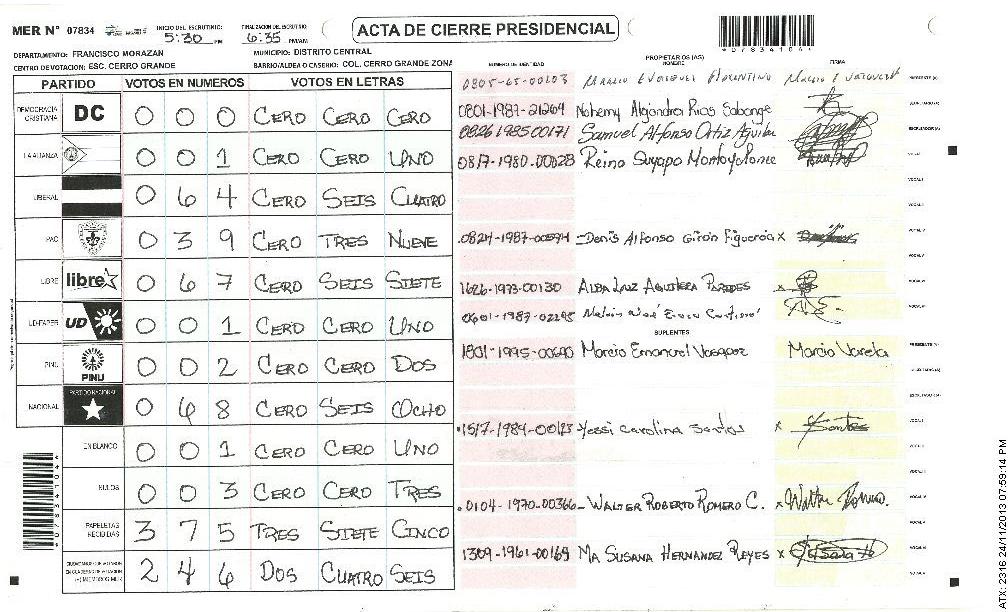 MER Nº 07834 INICIO DEL ESCRUTINIO: 5:30 PM FINALIZACION DEL ESCRUTINIO: 6:35 PM/AM
ACTA DE CIERRE PRESIDENCIAL
*078341041*
DEPARTAMENTO: FRANCISCO MORAZAN MUNICIPIO: DISTRITO CENTRAL
CENTRO DE VOTACION: ESC. CERRO GRANDE BARRIO/ALDEA O CASERIO: COL. CERRO GRANDE ZONA
PARTIDO VOTOS EN NUMEROS VOTOS EN LETRAS
DEMOCRACIA CRISTIANA DC 0 0 0 CERO CERO CERO
LA ALIANZA 0 0 1 CERO CERO UNO
LIBERAL 0 6 4 CERO SEIS CUATRO
PAC 0 3 9 CERO TRES NUEVE
LIBRE libre 0 6 7 CERO SEIS SIETE
UD-FAPER UD 0 0 1 CERO CERO UNO
PINU PINU 0 0 2 CERO CERO DOS
NACIONAL PARTIDO NACIONAL 0 6 8 CERO SEIS OCHO
EN BLANCO 0 0 1 CERO CERO UNO
NULOS 0 0 3 CERO CERO TRES
PAPELETAS RECIBIDAS 3 7 5 TRES SIETE CINCO
CIUDADANOS QUE VOTARON EN CUADERNO DE VOTACION (+) MIEMBROS MER 2 4 6 DOS CUATRO SEIS
NUMERO DE IDENTIDAD PROPIETARIOS (AS) NOMBRE FIRMA
0805-65-00103
0801-1987-21264 Nohemy Alejandra Rios Sabonge
0826 1985 00171 Samuel Alfonso Ortiz Aguilar
0817-1980-00028 Reino Suyapo
0824-1987-00574 -Denis Alfonso Girón Figueroa x
1626-1973-00130 ALBA LUZ AGUILERA PAREDES x
0601-1987-02295
SUPLENTES
1801-1995-00690 Marcio Emanuel Vasquez Marcio Varela
1517-1984-00123 Yessi Carolina Santos x Santos
.0104-1970-00366- WALTER ROBERTO ROMERO C. x Walter Romero.
1309-1961-00169 MA SUSANA HERNANDEZ REYES x
*078341041*
ATX: 2316 24/11/2013 07:59:14 PM